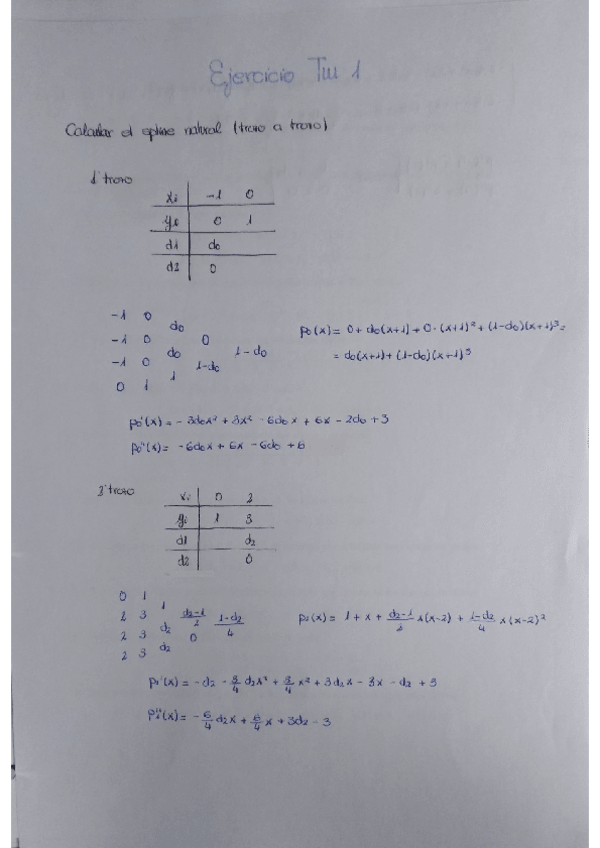 Ejercicio Tiu 1
Calcular el spline natural (trozo a trozo)
1º trozo
xi -1 0
yi 0 1
d1 d0
d2 0
-1 0
d0
-1 0 0
d0 1-d0
-1 0 1-d0
1
0 1
p0(x) = 0 + d0(x+1) + 0·(x+1)² + (1-d0)(x+1)³ =
= d0(x+1) + (1-d0)(x+1)³
p0'(x) = -3d0x² + 3x² - 6d0x + 6x - 2d0 + 3
p0''(x) = -6d0x + 6x - 6d0 + 6
2º trozo
xi 0 2
yi 1 3
d1 d2
d2 0
0 1
1
2 3 d2-1/2 1-d2/4
d2
2 3 0
d2
2 3
p1(x) = 1 + x + d2-1/2 x(x-2) + 1-d2/4 x(x-2)²
p1'(x) = -d2 - 3/4 d2x² + 3/4 x² + 3d2x - 3x - d2 + 3
p1''(x) = -6/4 d2x + 6/4 x + 3d2 - 3